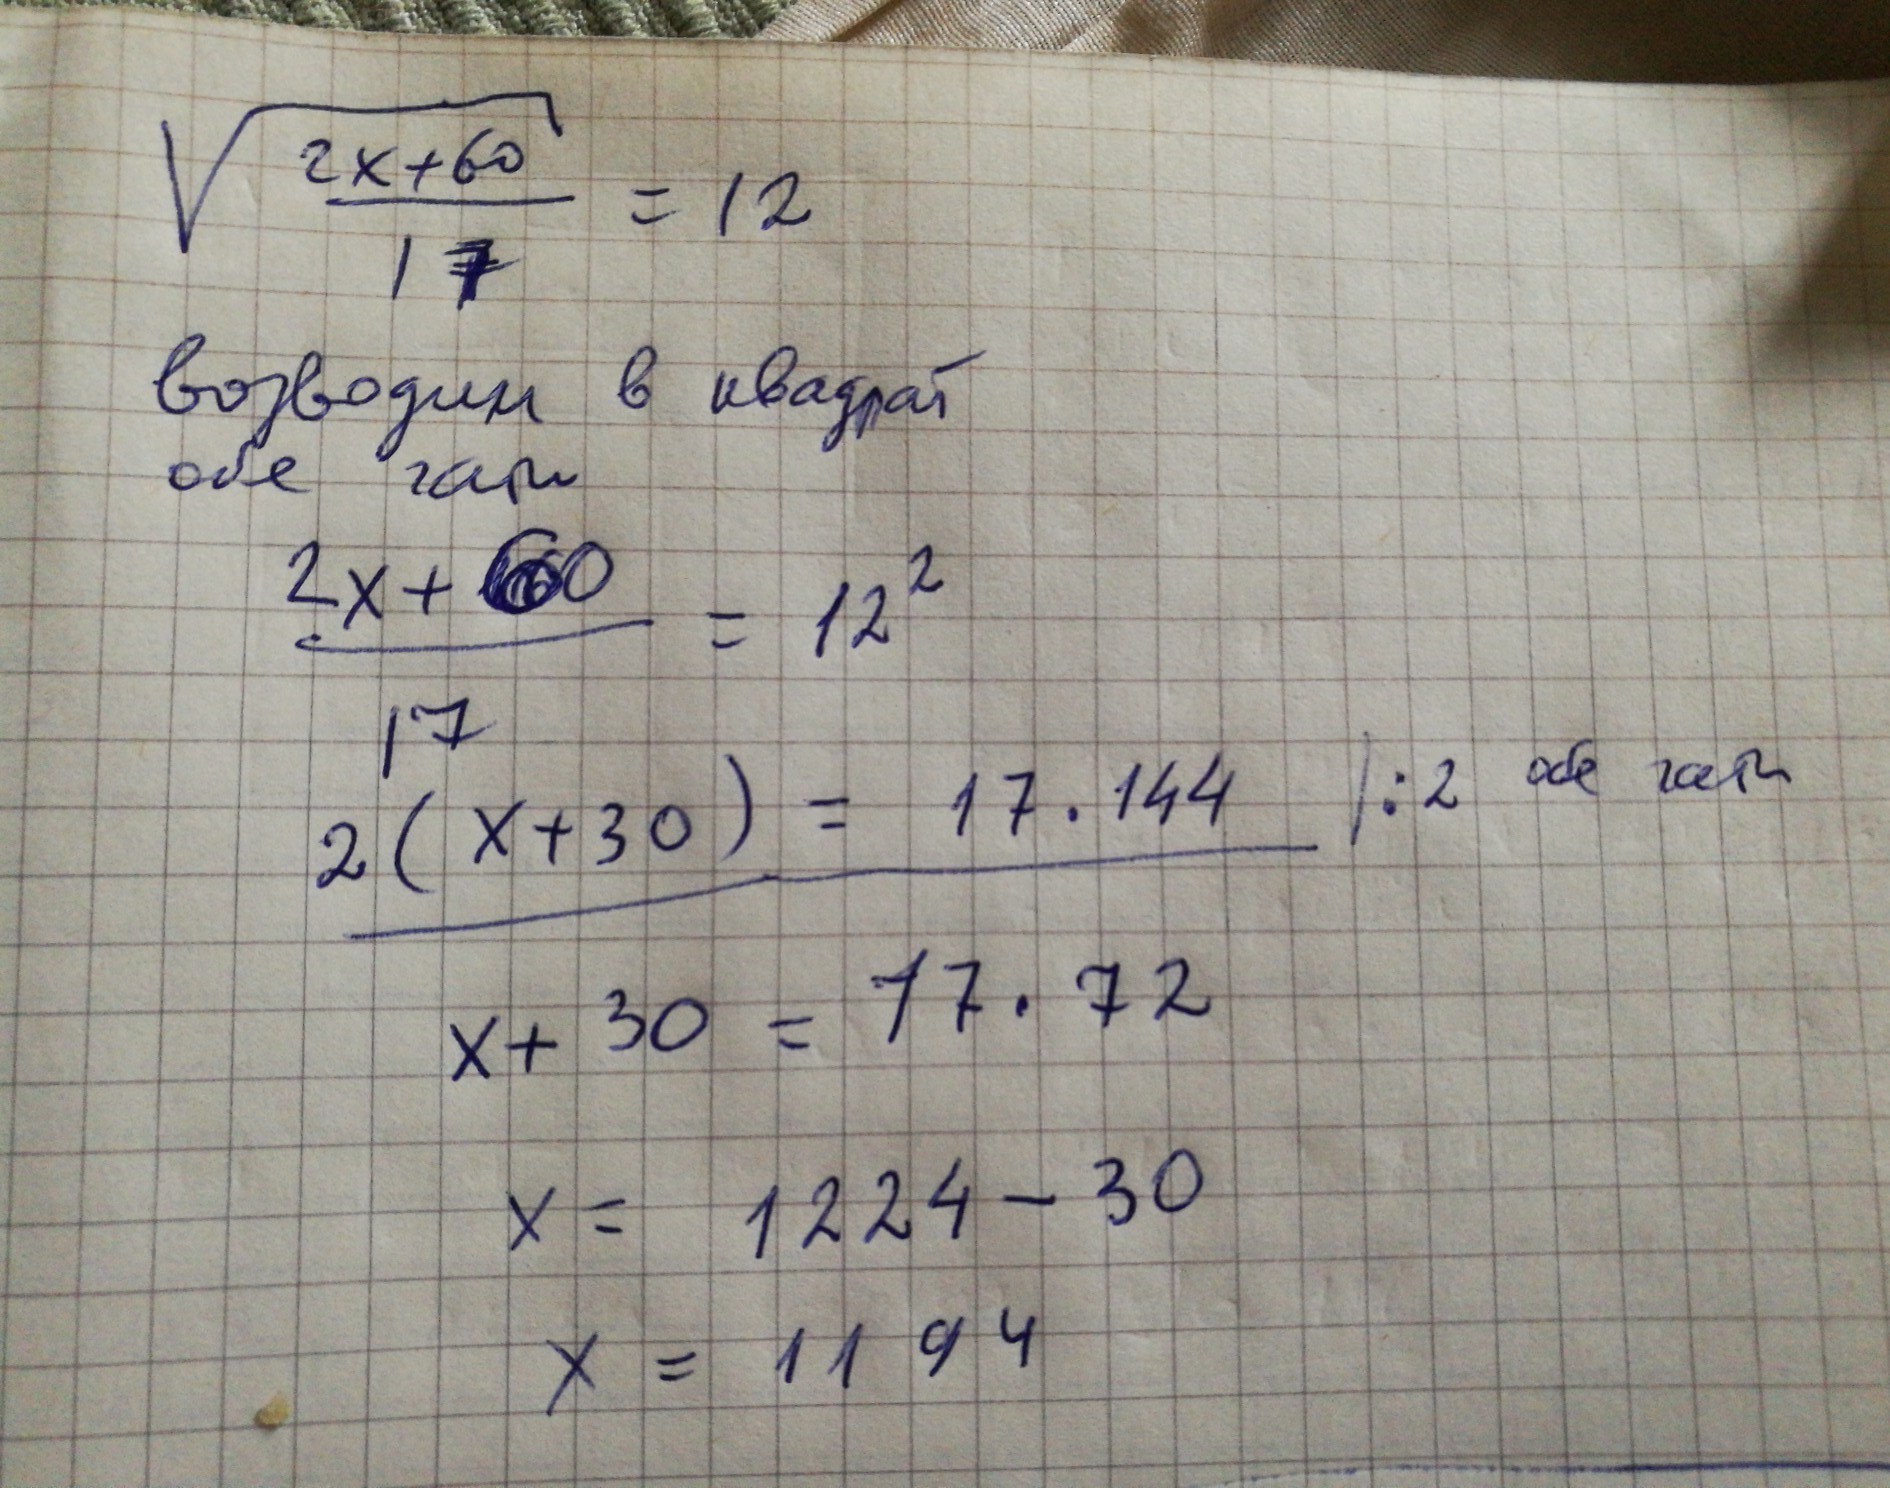 √((2x+60)/17) = 12
возводим в квадрат
обе части
(2x+60)/17 = 12²
2(x+30) = 17·144 |:2 обе части
x+30 = 17·72
x = 1224-30
x = 1194